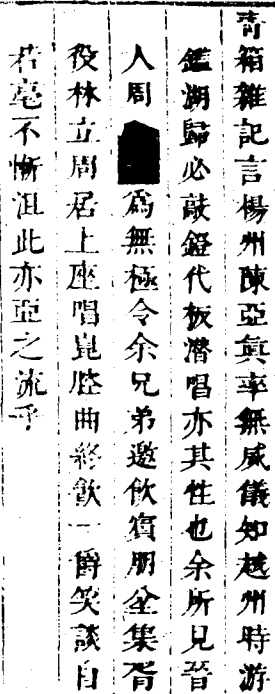 青箱雜記言楊州陳亞眞率無威儀知越州時游
鑑湖歸必敲鐙代板潛唱亦其性也余所見晉
人周為無極令余兄弟邀飲賓朋全集胥
役林立周居上座唱崑腔曲終飲一爵笑談自
若毫不慚沮此亦亞之流乎